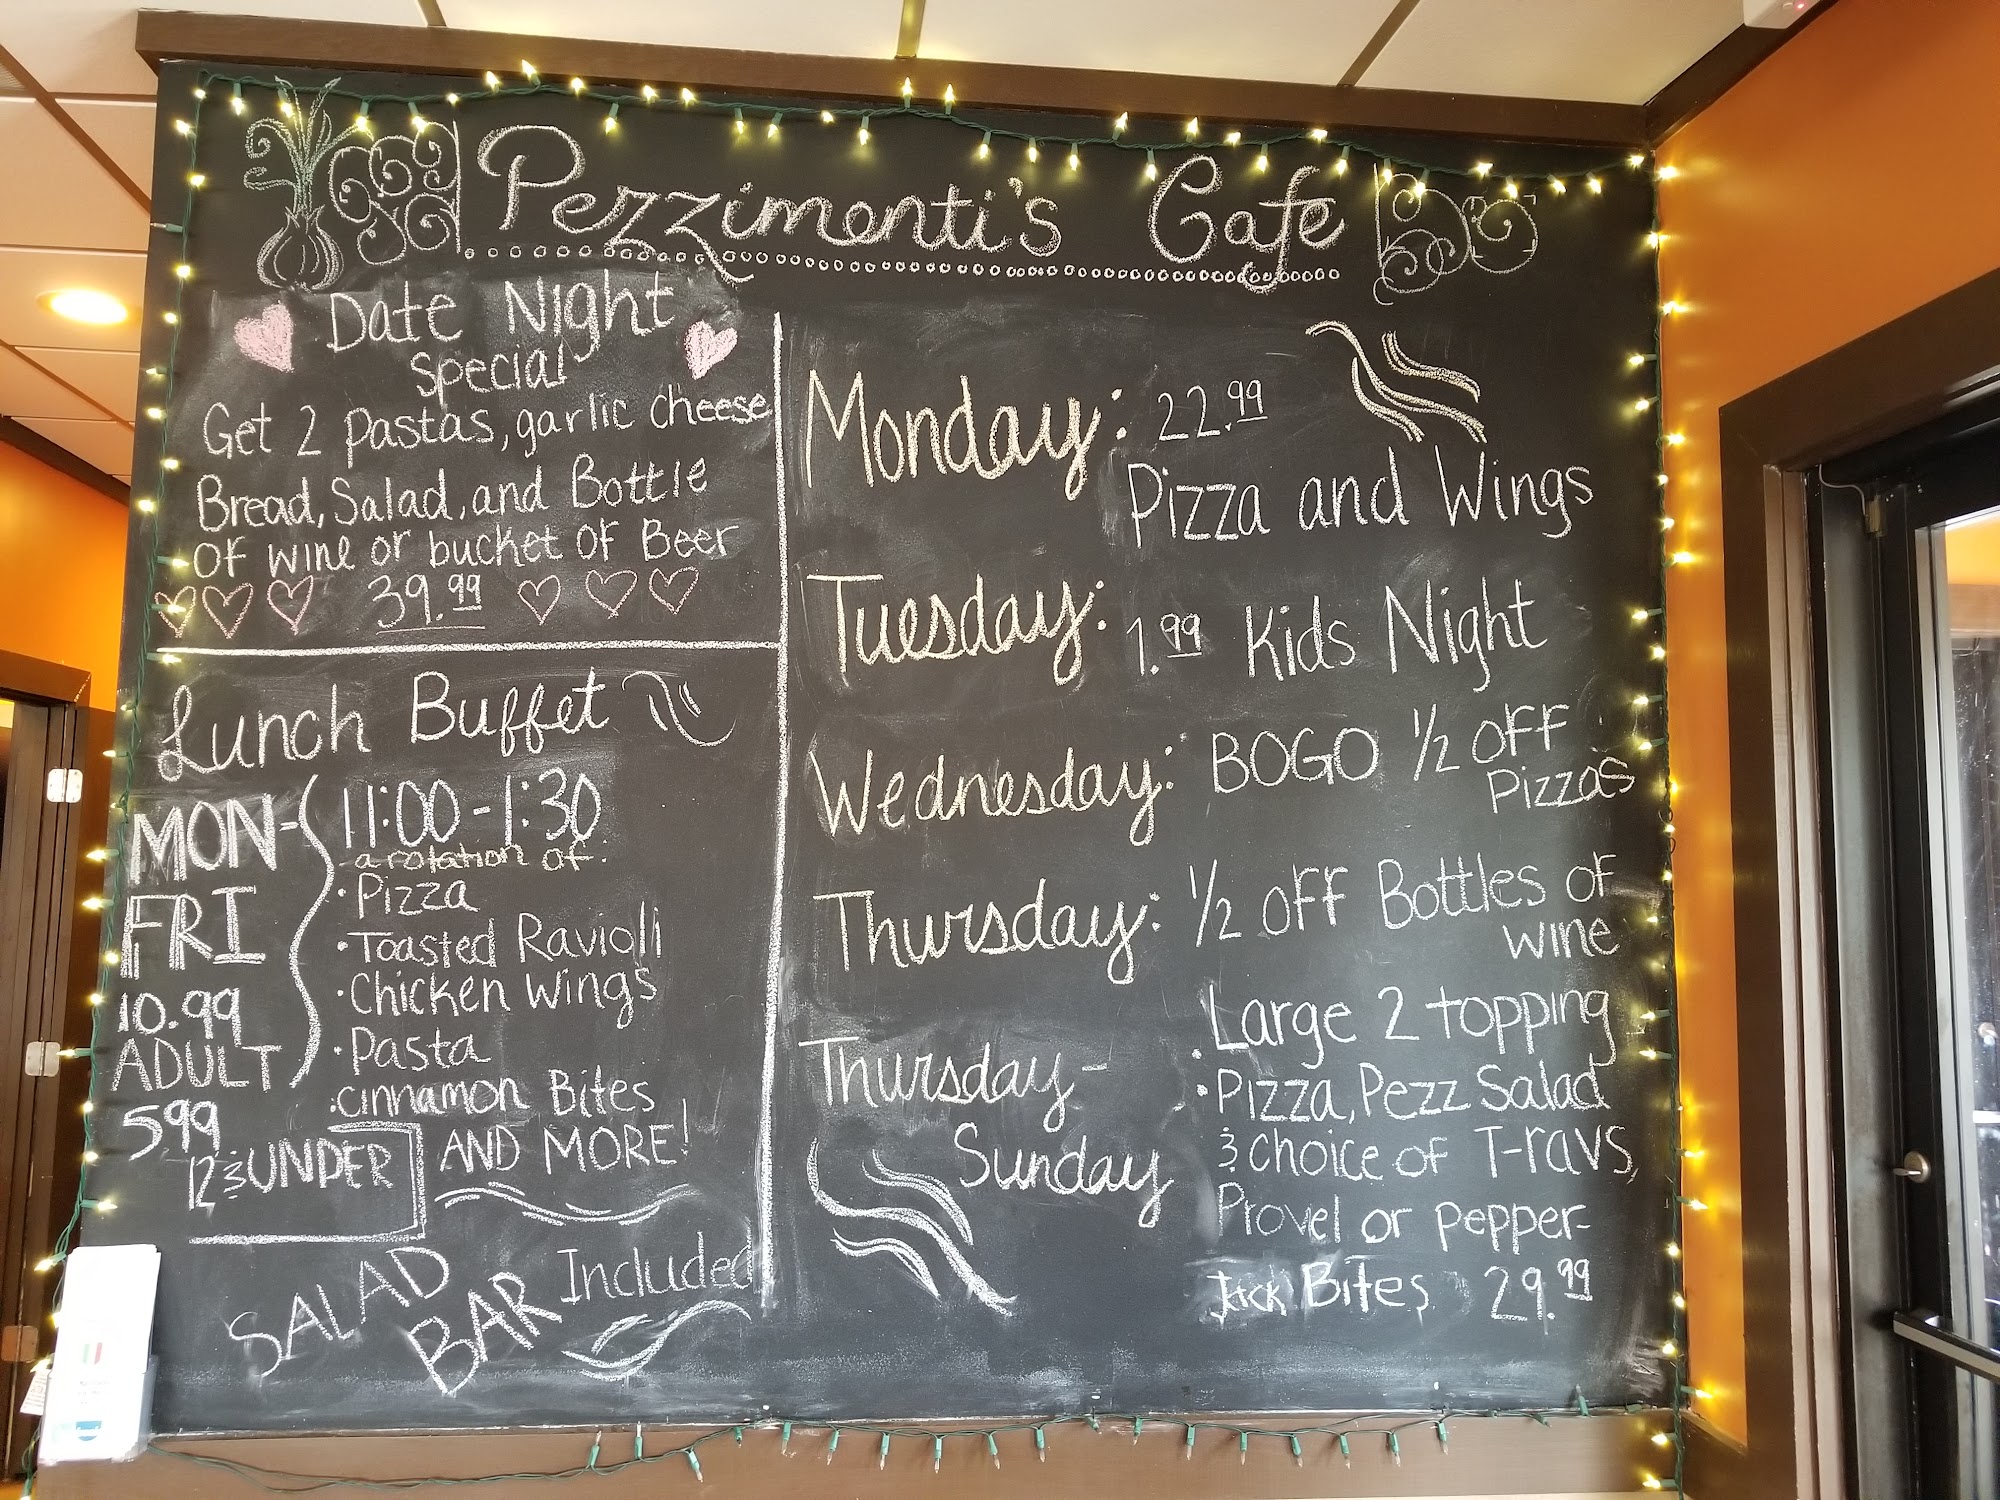 Pezzimenti's Cafe
Date Night
special
Get 2 Pastas, garlic cheese
Bread, Salad, and Bottle
of wine or bucket of Beer
39.99
Lunch Buffet
MON-
FRI
10.99
ADULT
599
12 & UNDER
11:00-1:30
a rotation of:
• Pizza
• Toasted Ravioli
• Chicken Wings
• Pasta
• cinnamon Bites
AND MORE!
SALAD
BAR Included
Monday: 22.99
Pizza and Wings
Tuesday: 1.99 Kids Night
Wednesday: BOGO 1/2 off
Pizzas
Thursday: 1/2 off Bottles of
wine
Thursday-
Sunday
: Large 2 topping
Pizza, Pezz Salad
& choice of T-ravs,
Provel or pepper-
Jack Bites 29.99